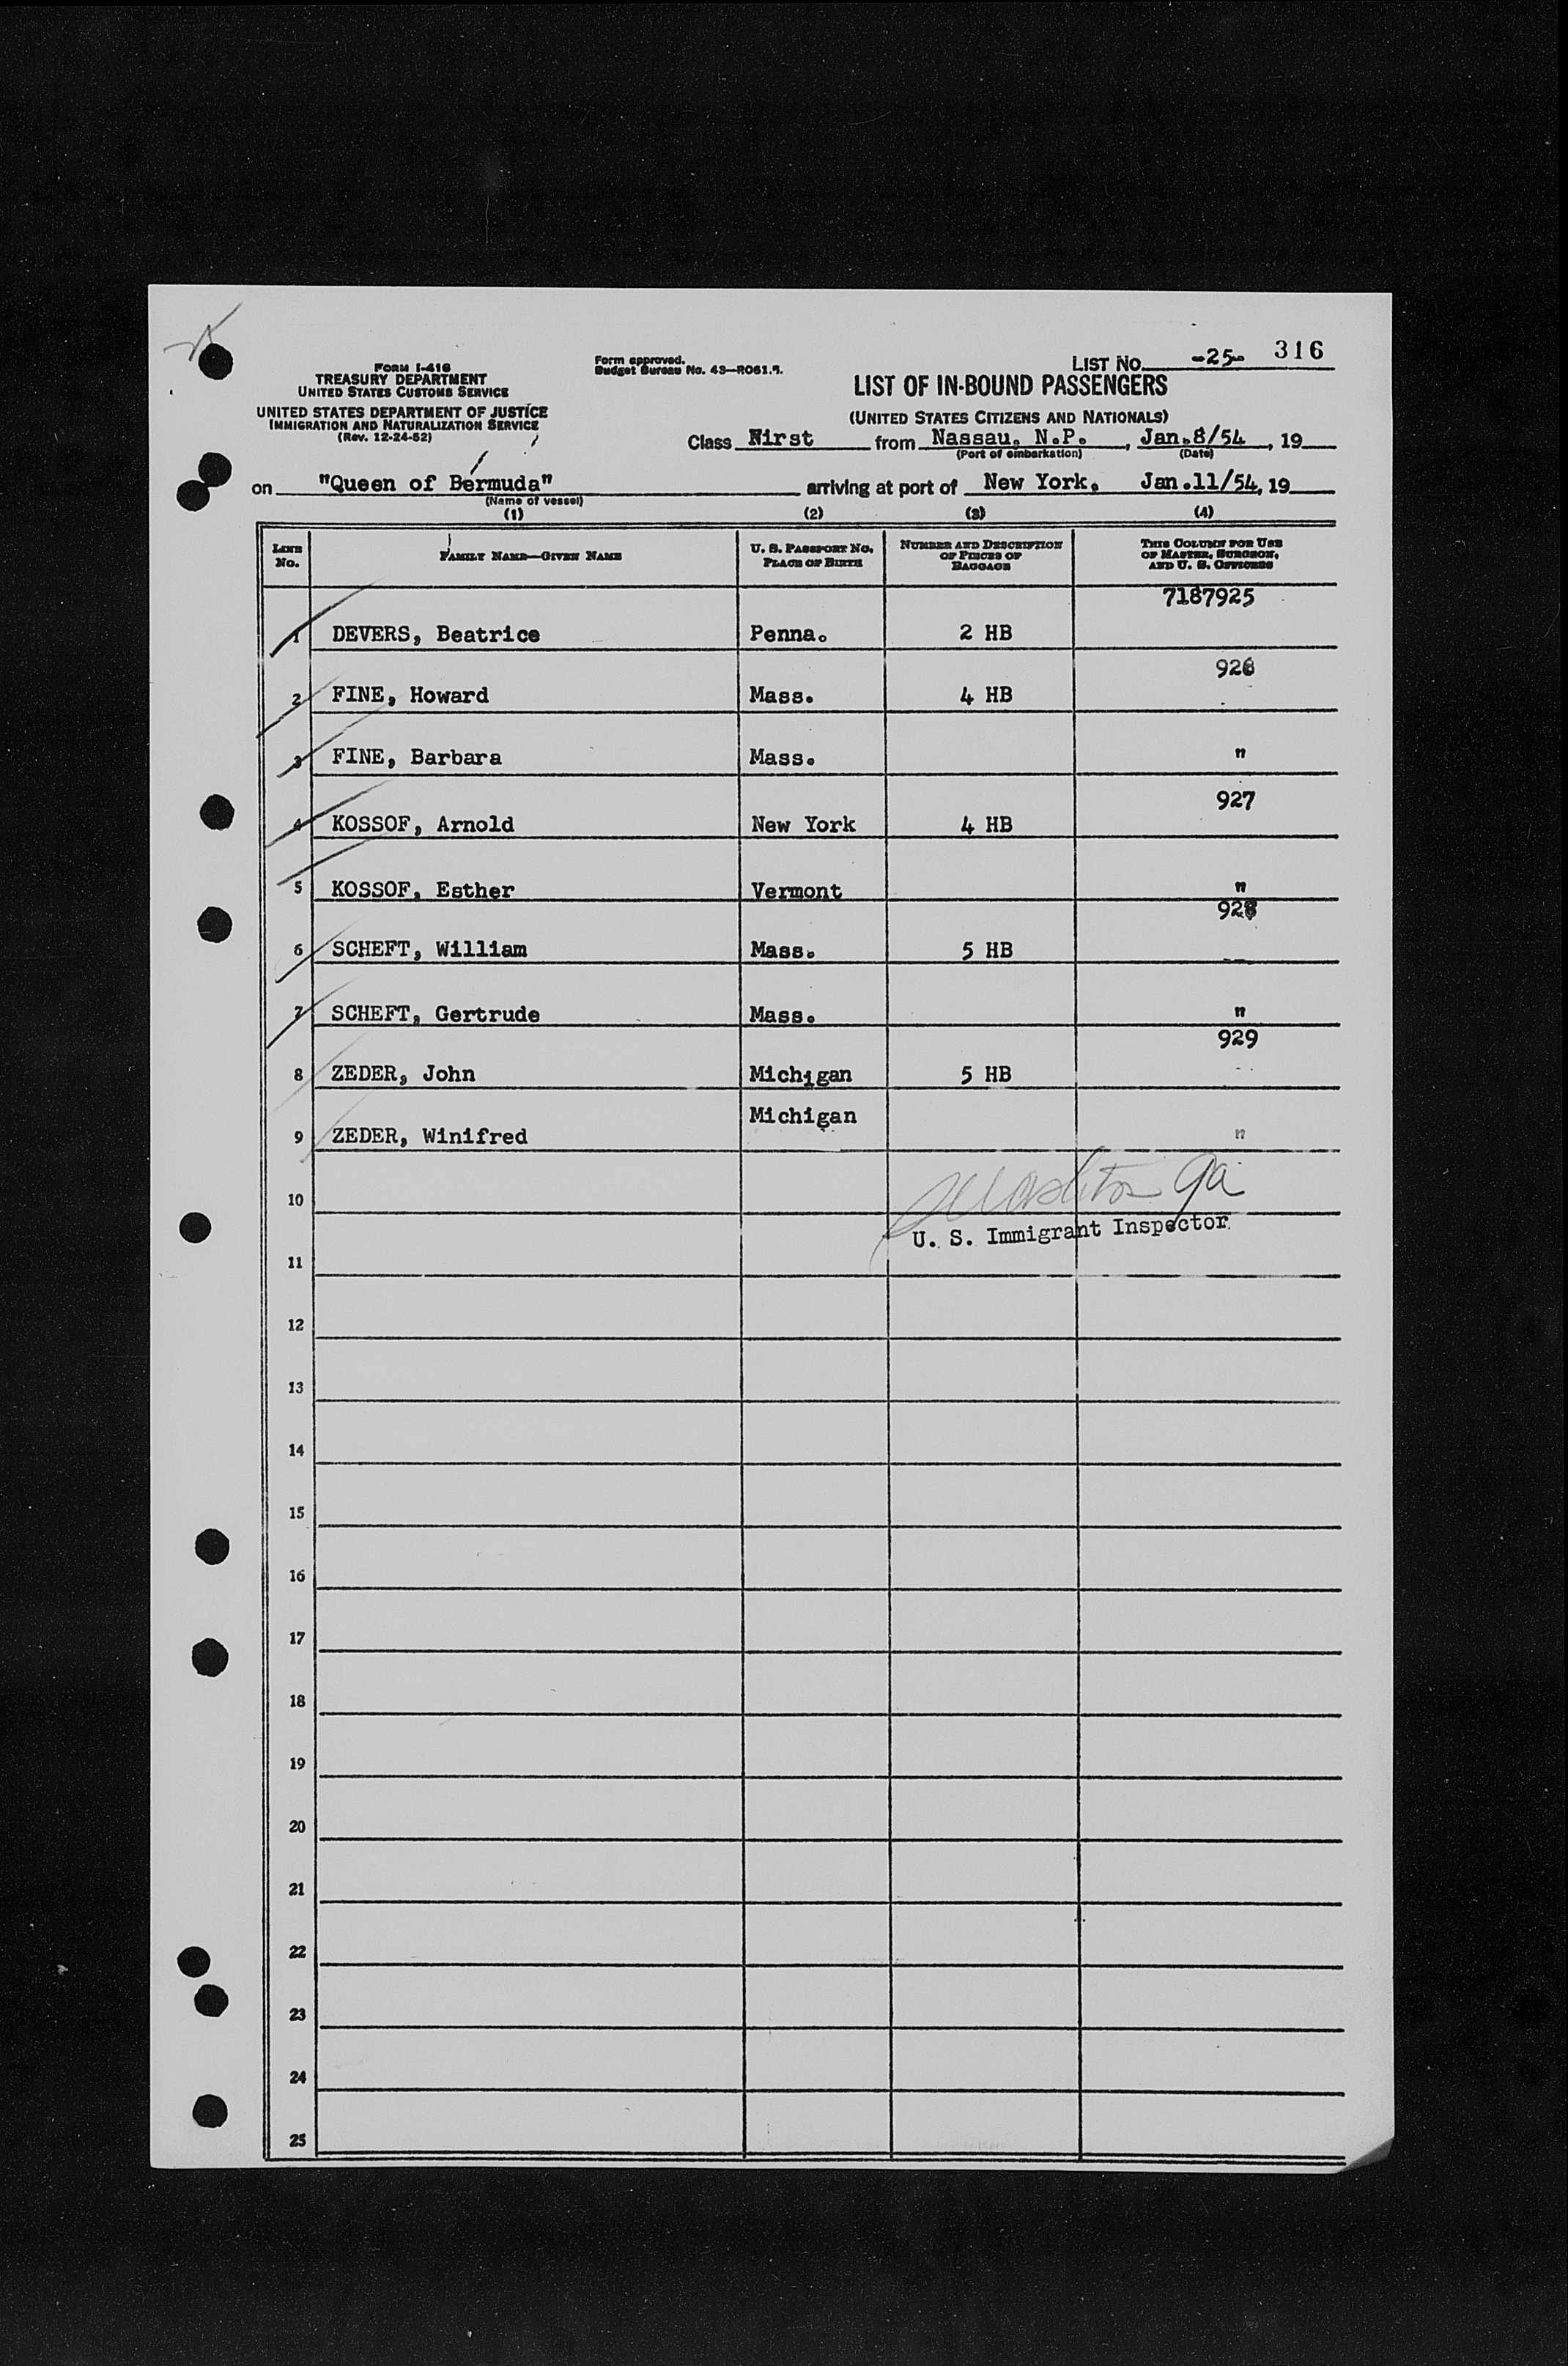 316
LIST NO. -25-
FORM I-416
TREASURY DEPARTMENT
UNITED STATES CUSTOMS SERVICE
UNITED STATES DEPARTMENT OF JUSTICE
IMMIGRATION AND NATURALIZATION SERVICE
(Rev. 12-24-52)
Form approved.
Budget Bureau No. 43—R061.
LIST OF IN-BOUND PASSENGERS
(UNITED STATES CITIZENS AND NATIONALS)
Class First from Nassau, N.P. , Jan.8/54 , 19
(Port of embarkation) (Date)
on "Queen of Bermuda" arriving at port of New York, Jan.11/54, 19
(Name of vessel)
(1) (2) (3) (4)
LINE No. FAMILY NAME—GIVEN NAME U. S. PASSPORT NO. PLACE OF BIRTH NUMBER AND DESCRIPTION OF PIECES OF BAGGAGE THIS COLUMN FOR USE OF MASTER, SURGEON, AND U. S. OFFICERS
7187925
1 DEVERS, Beatrice Penna. 2 HB
926
2 FINE, Howard Mass. 4 HB
3 FINE, Barbara Mass. "
927
4 KOSSOF, Arnold New York 4 HB
5 KOSSOF, Esther Vermont "
928
6 SCHEFT, William Mass. 5 HB
7 SCHEFT, Gertrude Mass. "
929
8 ZEDER, John Michigan 5 HB
9 ZEDER, Winifred Michigan "
10
U. S. Immigrant Inspector
11
12
13
14
15
16
17
18
19
20
21
22
23
24
25